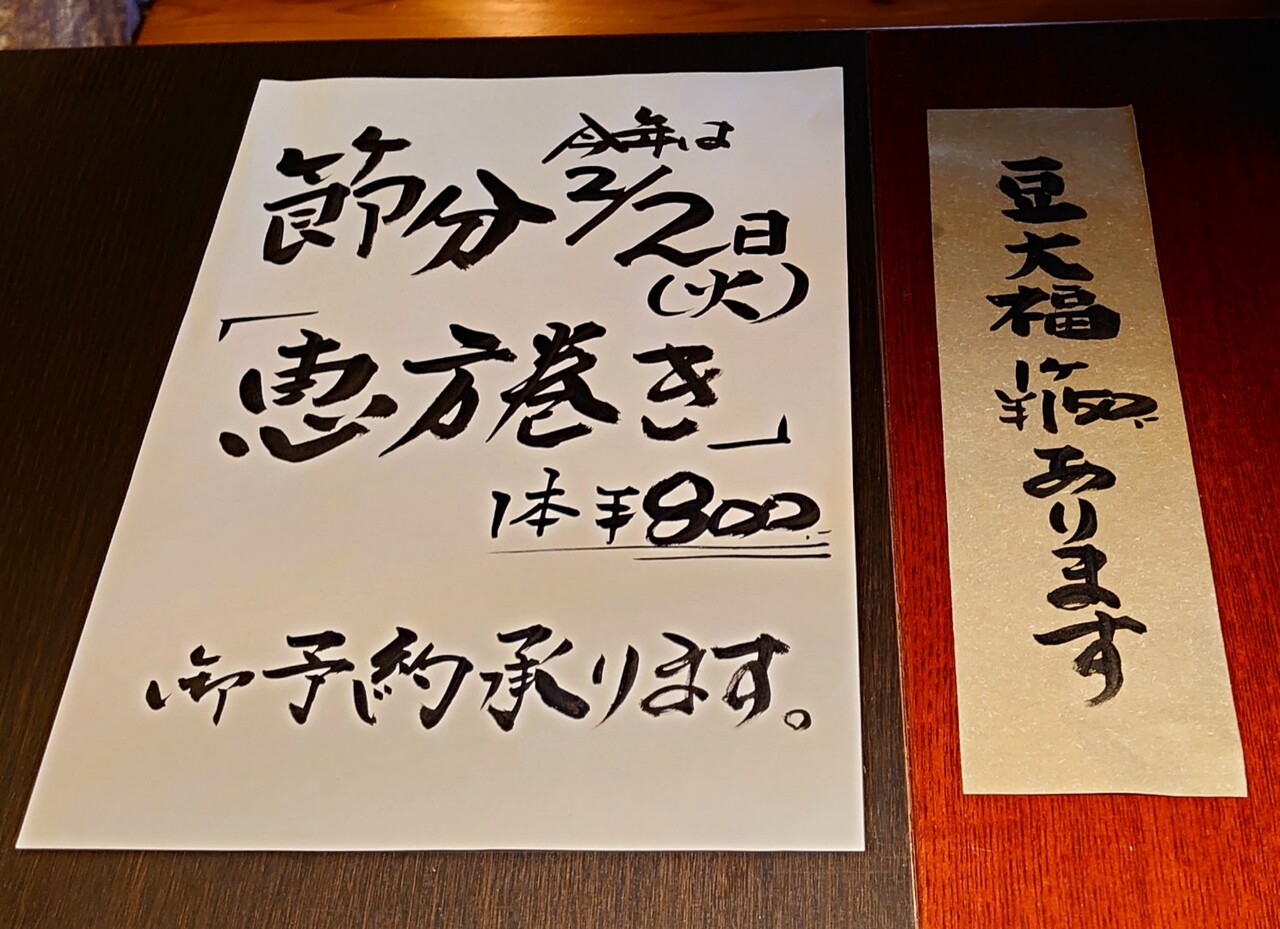 今年は
節分 2/2日
(火)
「恵方巻き」
1本 ¥800.
御予約承ります。
豆大福
1ケ
¥150.
あります